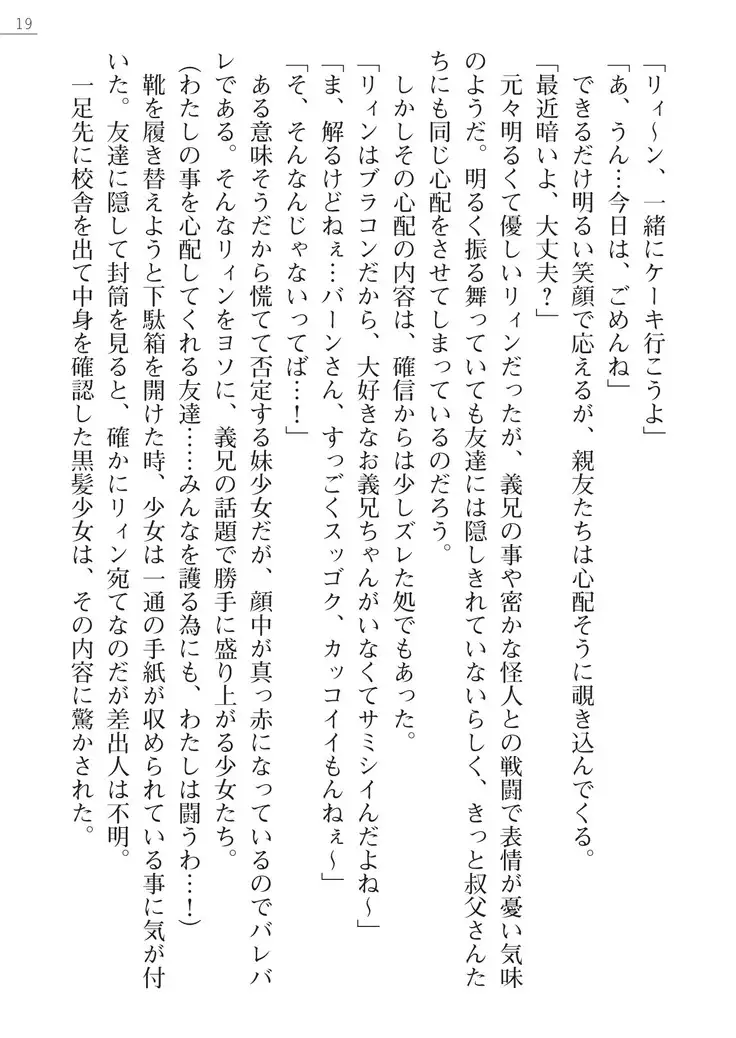 19
「リィ～ン、一緒にケーキ行こうよ」
「あ、うん…今日は、ごめんね」
できるだけ明るい笑顔で応えるが、親友たちは心配そうに覗き込んでくる。
「最近暗いよ、大丈夫？」
元々明るくて優しいリィンだったが、義兄の事や密かな怪人との戦闘で表情が憂い気味
のようだ。明るく振る舞っていても友達には隠しきれていないらしく、きっと叔父さんた
ちにも同じ心配をさせてしまっているのだろう。
しかしその心配の内容は、確信からは少しズレた処でもあった。
「リィンはブラコンだから、大好きなお義兄ちゃんがいなくてサミシイんだよね～」
「ま、解るけどねぇ…バーンさん、すっごくスッゴク、カッコイイもんねぇ～」
「そ、そんなんじゃないってば…！」
ある意味そうだから慌てて否定する妹少女だが、顔中が真っ赤になっているのでバレバ
レである。そんなリィンをヨソに、義兄の話題で勝手に盛り上がる少女たち。
（わたしの事を心配してくれる友達……みんなを護る為にも、わたしは闘うわ…！）
靴を履き替えようと下駄箱を開けた時、少女は一通の手紙が収められている事に気が付
いた。友達に隠して封筒を見ると、確かにリィン宛てなのだが差出人は不明。
一足先に校舎を出て中身を確認した黒髪少女は、その内容に驚かされた。